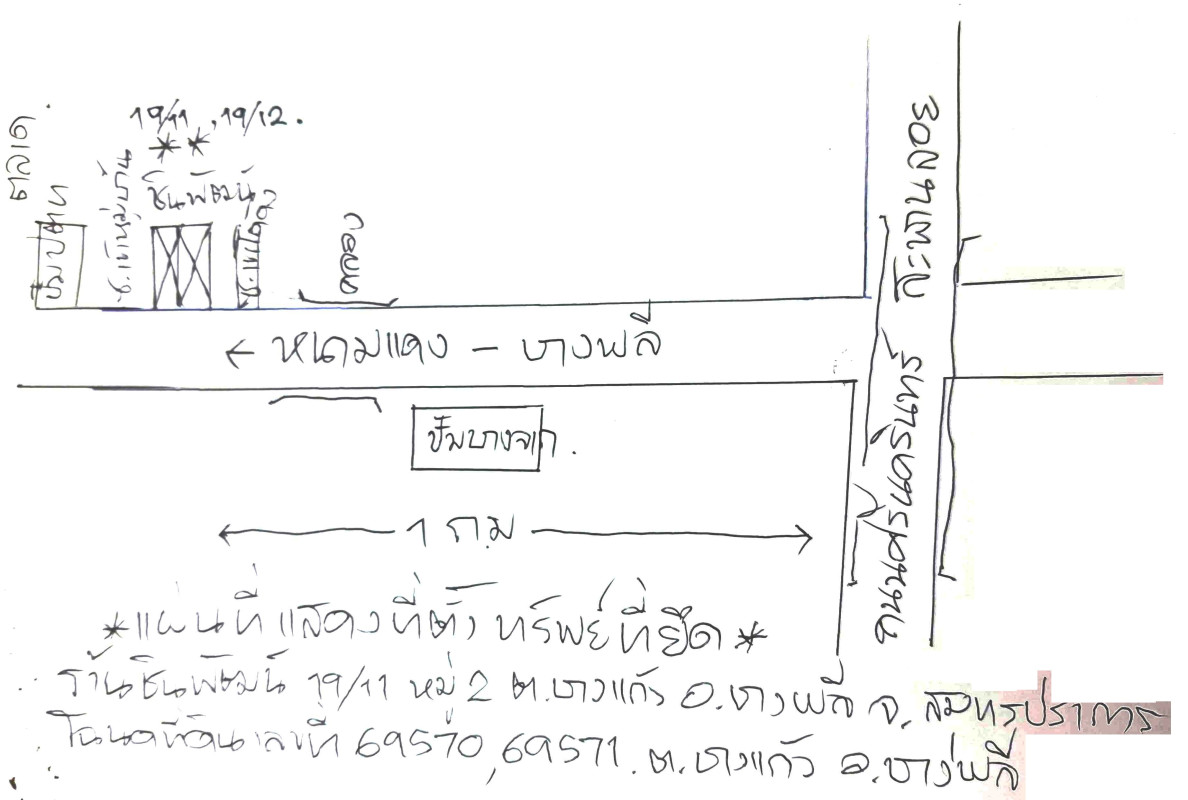 19/11, 19/12.
ตลาด
ปั๊มปตท
ชินพัฒน์
ซอย
← หนามแดง - บางพลี
ปั๊มบางจาก.
1 กม
ถนนศรีนครินทร์
*แผนที่แสดงที่ตั้ง ทรัพย์ที่ยึด*
ร้านชินพัฒน์ 19/11 หมู่ 2 ต.บางแก้ว อ.บางพลี จ. สมุทรปราการ
โฉนดที่ดินเลขที่ 69570, 69571. ต.บางแก้ว อ.บางพลี